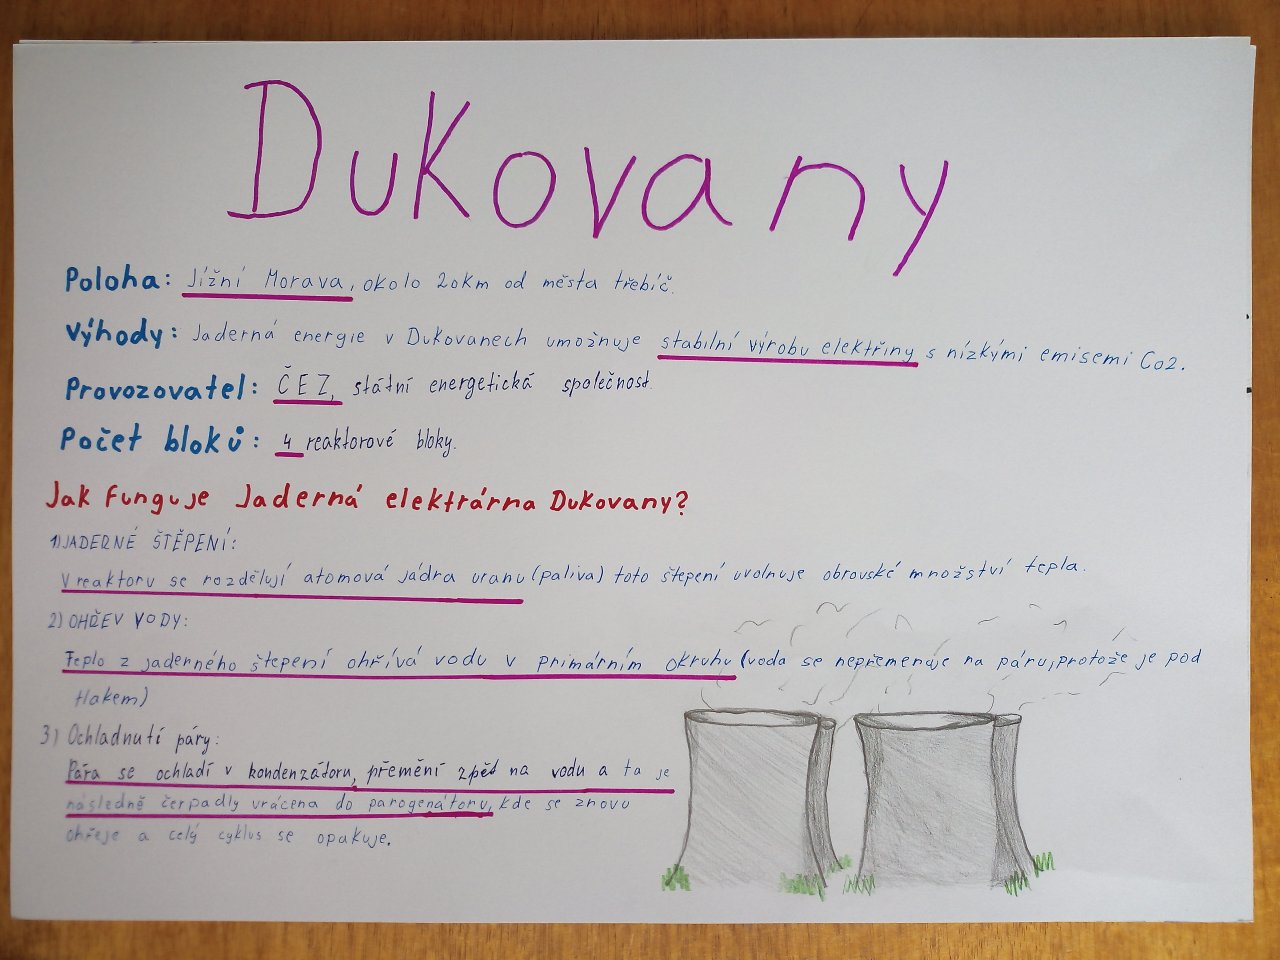 Dukovany
Poloha: Jížní Morava, okolo 20km od města třebíč.
Výhody: Jaderná energie v Dukovanech umožnuje stabilní výrobu elektřiny s nízkými emisemi Co2.
Provozovatel: ČEZ, státní energetická společnost.
Počet bloků: 4 reaktorové bloky.
Jak funguje Jaderná elektrárna Dukovany?
1) JADERNÉ ŠTĚPENÍ:
V reaktoru se rozdělují atomová jádra uranu (paliva) toto štepení uvolnuje obrovské množství tepla.
2) OHŘEV VODY:
Teplo z jaderného štepení ohřívá vodu v primárním okruhu (voda se nepřemenuje na páru, protože je pod
tlakem)
3) Ochladnutí páry:
Pára se ochladí v kondenzátoru, přemění zpět na vodu a ta je
následně čerpadly vrácena do parogenátoru, kde se znovu
ohřeje a celý cyklus se opakuje.